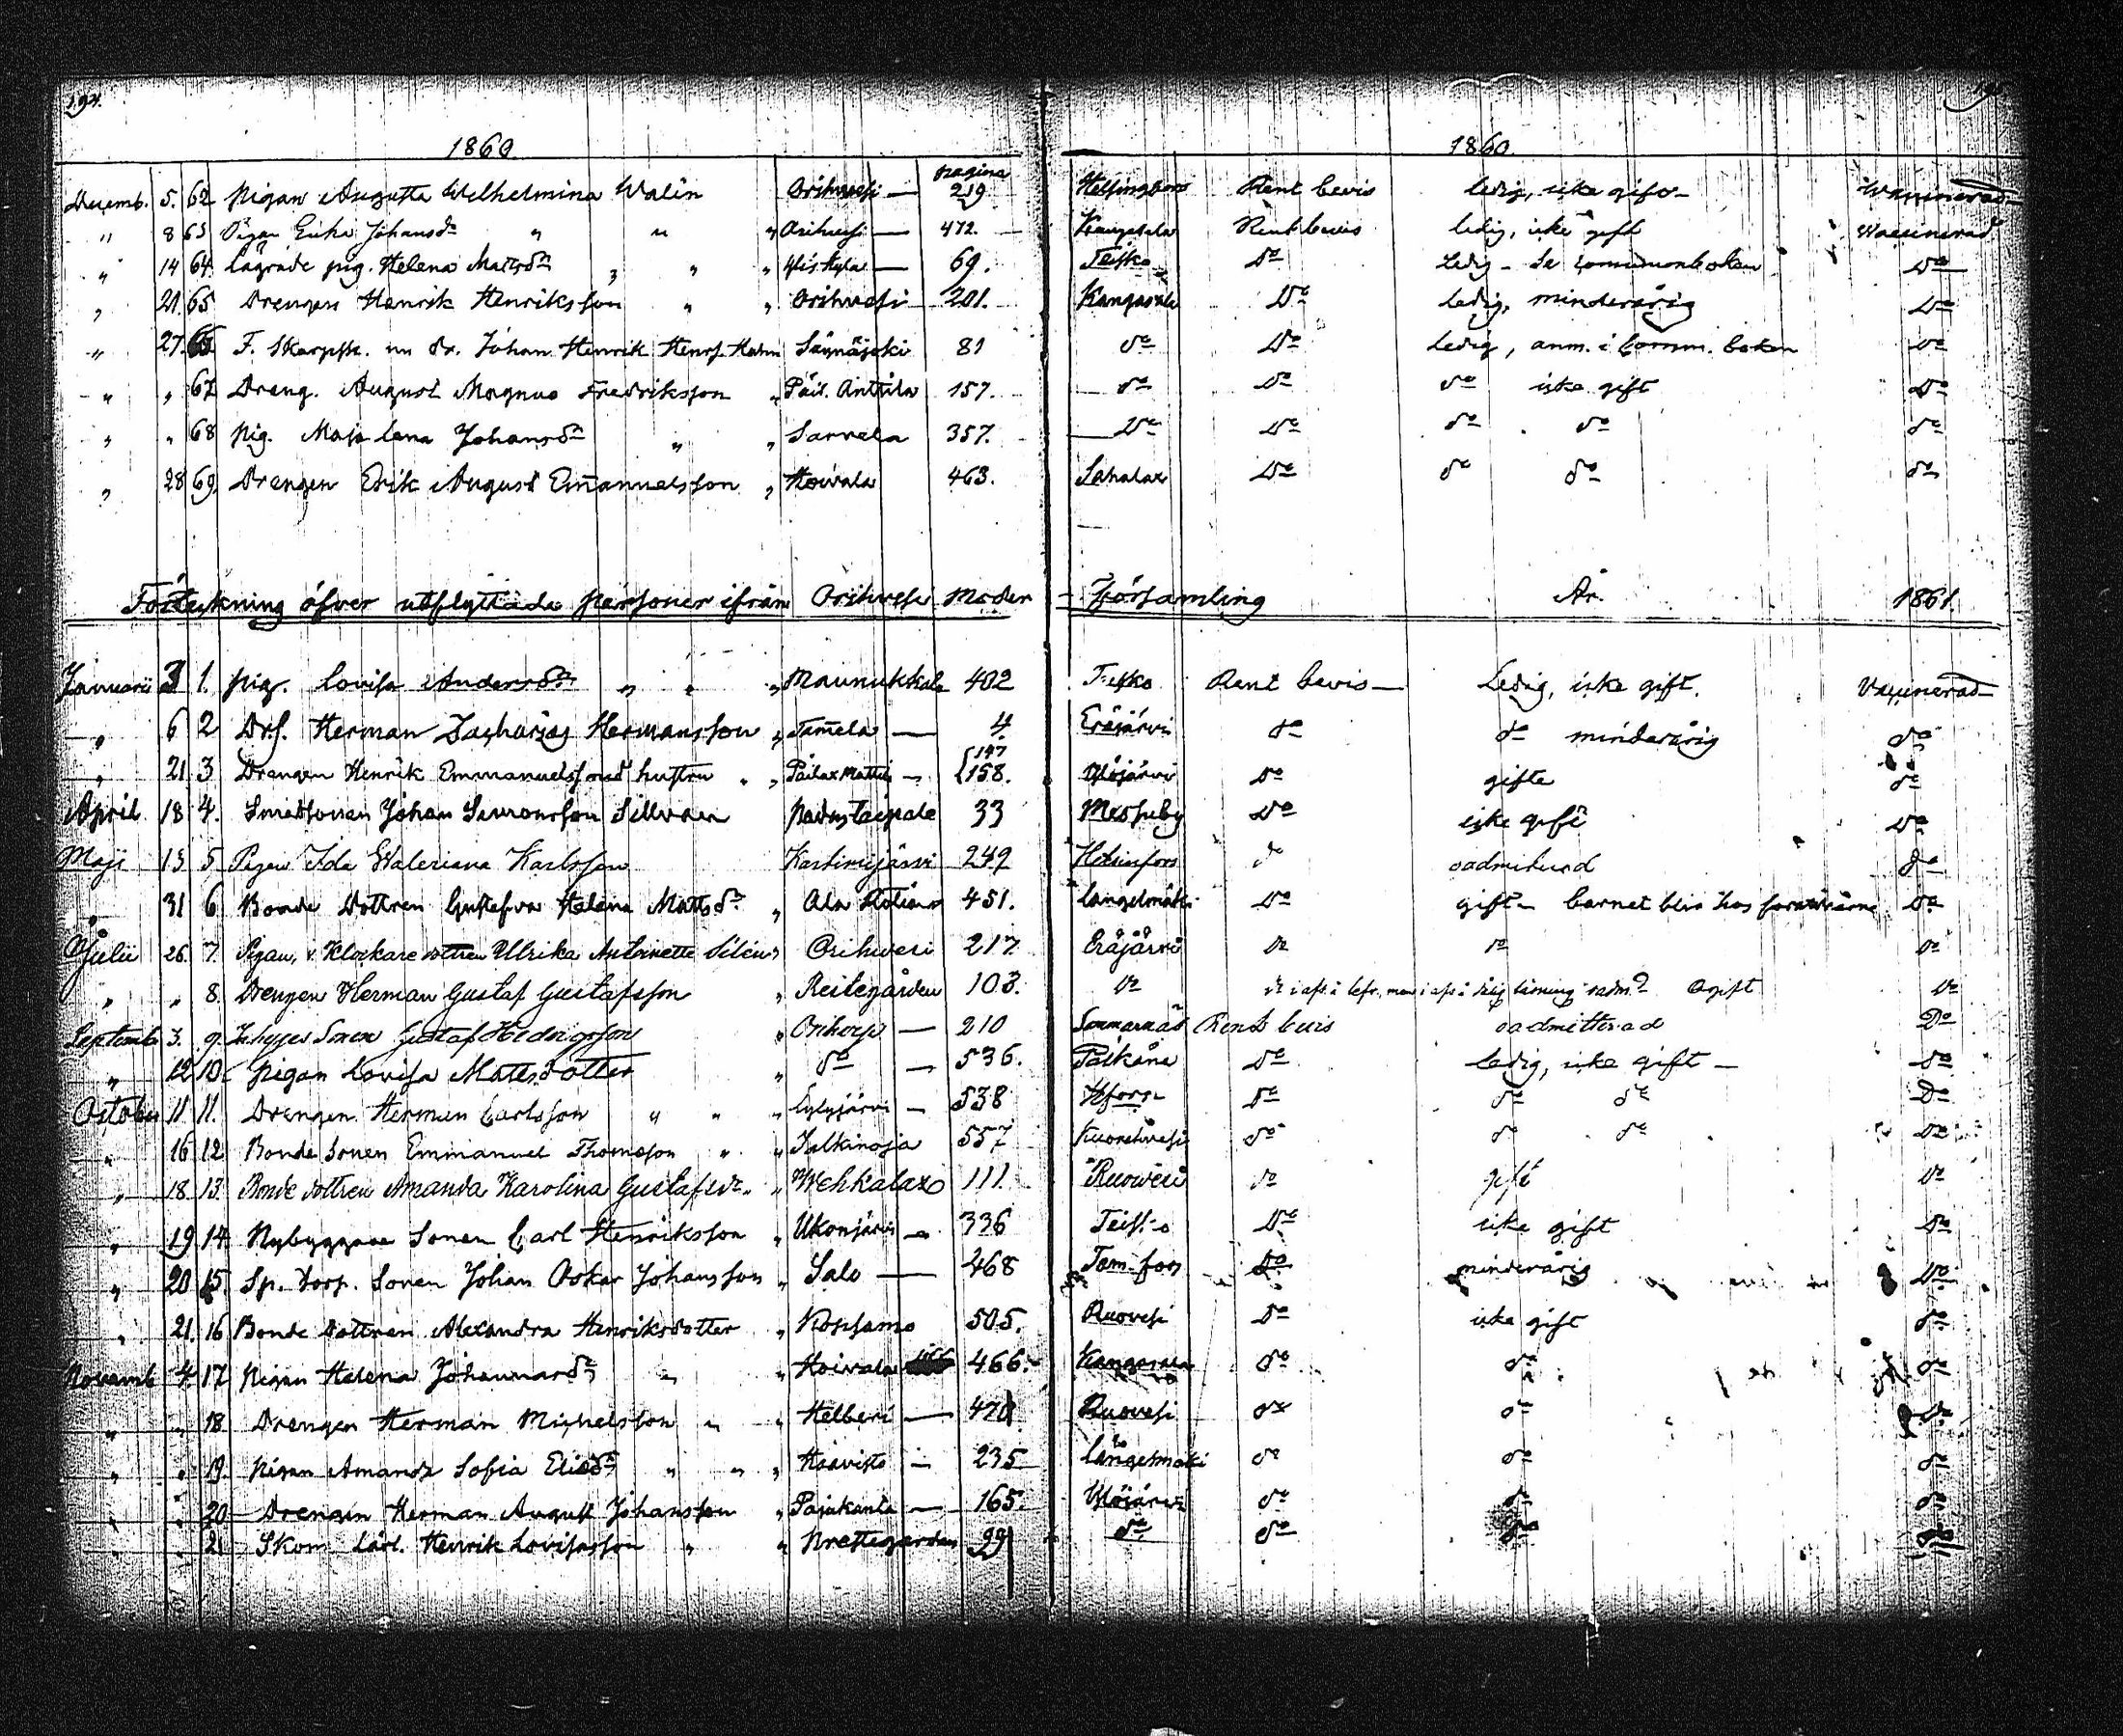 194.
1860 1860.
pagina
Decemb. 5. 62 Pigan Augusta Wilhelmina Walin Orihvesi — 219 Helsingfors Rent bevis ledig, icke gift — Vaccinerad
" 8 63 Pigan Erika Johansdr " " " Orihvesi — 472. Kangasala Rent bevis ledig, icke gift Vaccinerad
" 14 64 Lagrade pig. Helena Mattsdr " " " Yliskyla — 69. Teisko Do Ledig - Se communionboken Do
" 21 65 Drengen Henrik Henriksson " " Orihvesi — 201. Kangasala Do ledig, minderårig Do
" 27 66 F. Skarpsk. nu dr. Johan Henrik Henrs. Säynäjoki 81 do Do Ledig, anm. i comm. boken do
" " 67 Dreng. August Magnus Fredriksson " Päil. Anttila 157. do Do do icke gift Do
" " 68 Pig. Maja Lena Johansdr " " Sarvela 357. Do Do do do do
" 28 69. Drengen Erik August Emanuelsson " Hoivala 463. Sahalax Do do do do
Förteckning öfver utflyttade personer ifrån Orihvesi Moder - Församling År. 1861.
Januarii 3 1. Pig. Lovisa Andersdr " " " Maunukkala 402 Teisko Rent bevis — Ledig, icke gift. Vaccinerad
" 6 2 Drf. Herman Zacharias Hermansson " Tamela — 4. Eräjärvi do do minderårig do
" 21 3 Drengen Henrik Emmanuelsson d hustru " " Päilax Mattila — {147 158. Ylöjärvi do gifta do
April 18 4. Smedsonen Johan Simonsson Sillman Padustaipale 33 Messuby Do icke gift Do
Maji 13 5 Pigan Ida Waleriana Karlsson 249 Helsinfors do oadmitterad do
" 31 6 Bonde Dottren Gustafva Helena Mattsdr " Ala 451. Längelmäki Do gift - barnet blir hos föräldrarne Do
Julii 26. 7. Pigan, v. Klockare dottren Ulrika Antoinette Orihvesi 217. Eräjärvi do do do
" " 8. Drengen Herman Gustaf Gustafsson " Reitegården 103. do Ogift do
Septemb 3. 9. Sonen Gustaf Hedvigsson " Orihvesi — 210 Rent bevis oadmitterad Do
" 12 10. Pigan Lovisa Mattsdotter " do — 536. Pälkäne Do ledig, icke gift — Do
October 11. 11. Drengen Herman Carlsson " " " Lylyjärvi — 538 Hfors. Do do do Do
" 16 12 Bonde Sonen Emmanuel Thomasson " " Talkinoja 557 Kuorehvesi do do do Do
" 18. 13. Bonde dottren Amanda Karolina Gustafsdr. " Wehkalaxo 111. Ruovesi do gift do
" 19 14. Nybyggare Sonen Carl Henriksson " Ukonjärvi — 336 Teisko Do icke gift Do
" 20 15. Sp. Torp. Sonen Johan Oskar Johansson " Salo — 468 Tam-fors Do minderårig Do
" 21. 16 Bonde Dottren Alexandra Henriksdotter " 505. Ruovesi Do icke gift do
Novemb 4. 17 Pigan Helena Johannardr " " Hoivala 466. Kangasala do do do
" " 18 Drengen Herman Michelsson " " Helberi — 470 Ruovesi do do do
" " 19. Pigan Amanda Sofia Eliædr " " " Haavisto — 235 Längelmäki do do do
" " 20 Drengen Herman August Johansson " Pajukanta — 165. Ylöjärvi do do do
" " 21 Skom. Lärl. Henrik Lovisasson " " 99 do do do do